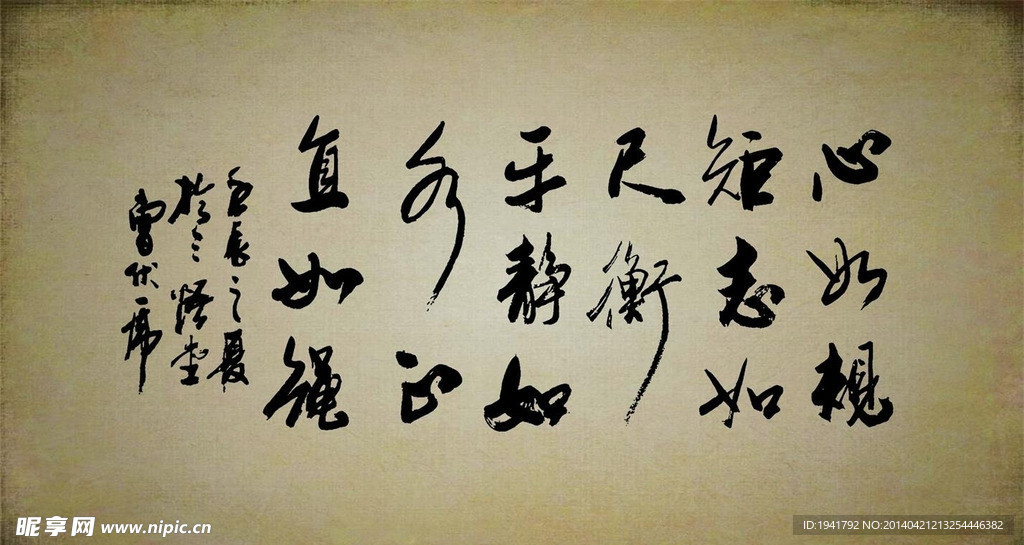 心如規
矩志如
尺衡
平静如
水正
直如绳
壬辰之夏
於三悟堂
曹伏虎
昵享网 www.nipic.cn
ID:1941792 NO:20140421213254446382